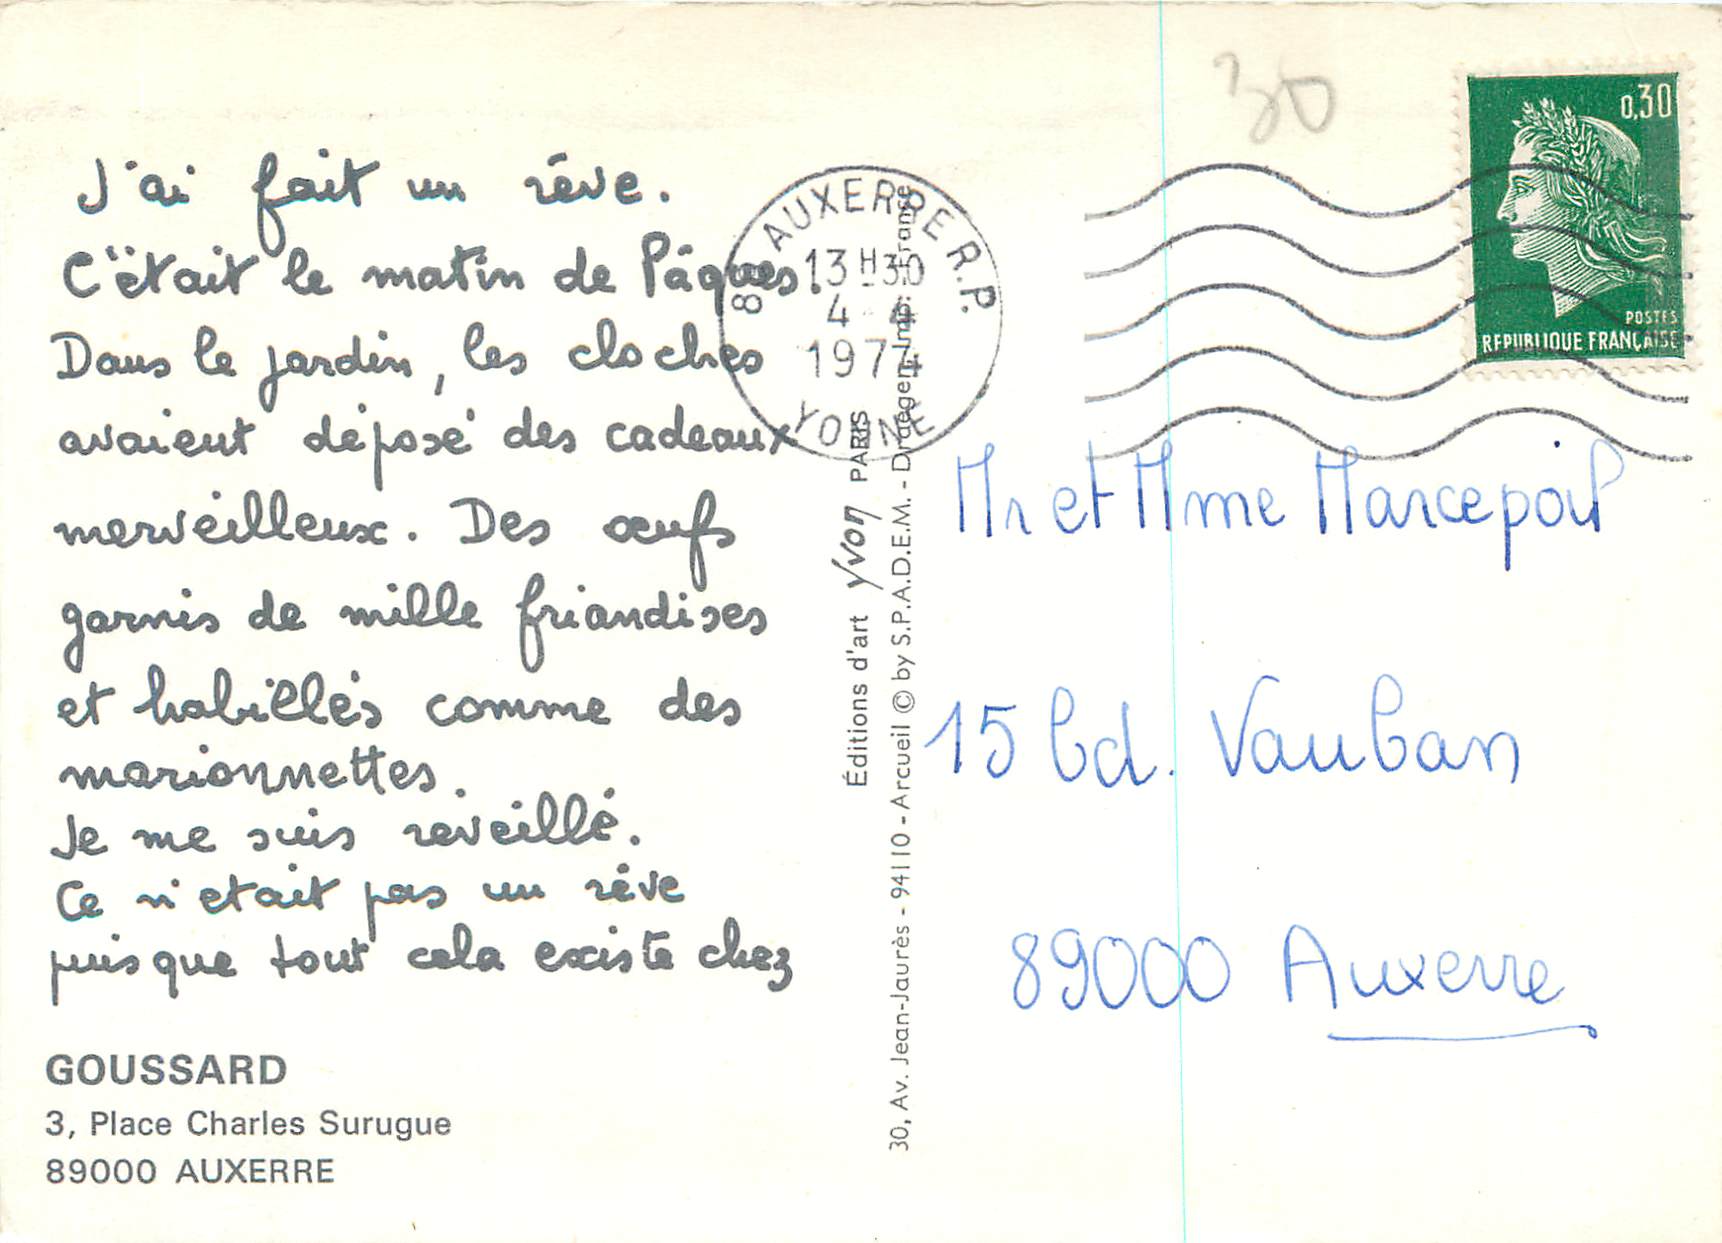 J'ai fait un rêve.
C'était le matin de Pâques.
Dans le jardin, les cloches
avaient déposé des cadeaux
merveilleux. Des œufs
garnis de mille friandises
et habillés comme des
marionnettes.
Je me suis réveillé.
Ce n'était pas un rêve
puisque tout cela existe chez
GOUSSARD
3, Place Charles Surugue
89000 AUXERRE
Éditions d'art yvon PARIS
30, Av. Jean-Jaurès - 94110 - Arcueil © by S.P.A.D.E.M. - Draeger, Imp. France
AUXERRE R.P.
13 H 30
4 - 4
1974
YONNE
30
0,30
POSTES
REPUBLIQUE FRANÇAISE
Mr et Mme Marcepoil
15 bd. Vauban
89000 Auxerre